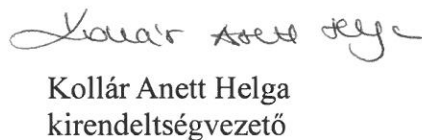 Kollár Anett Helga
Kollár Anett Helga
kirendeltségvezető